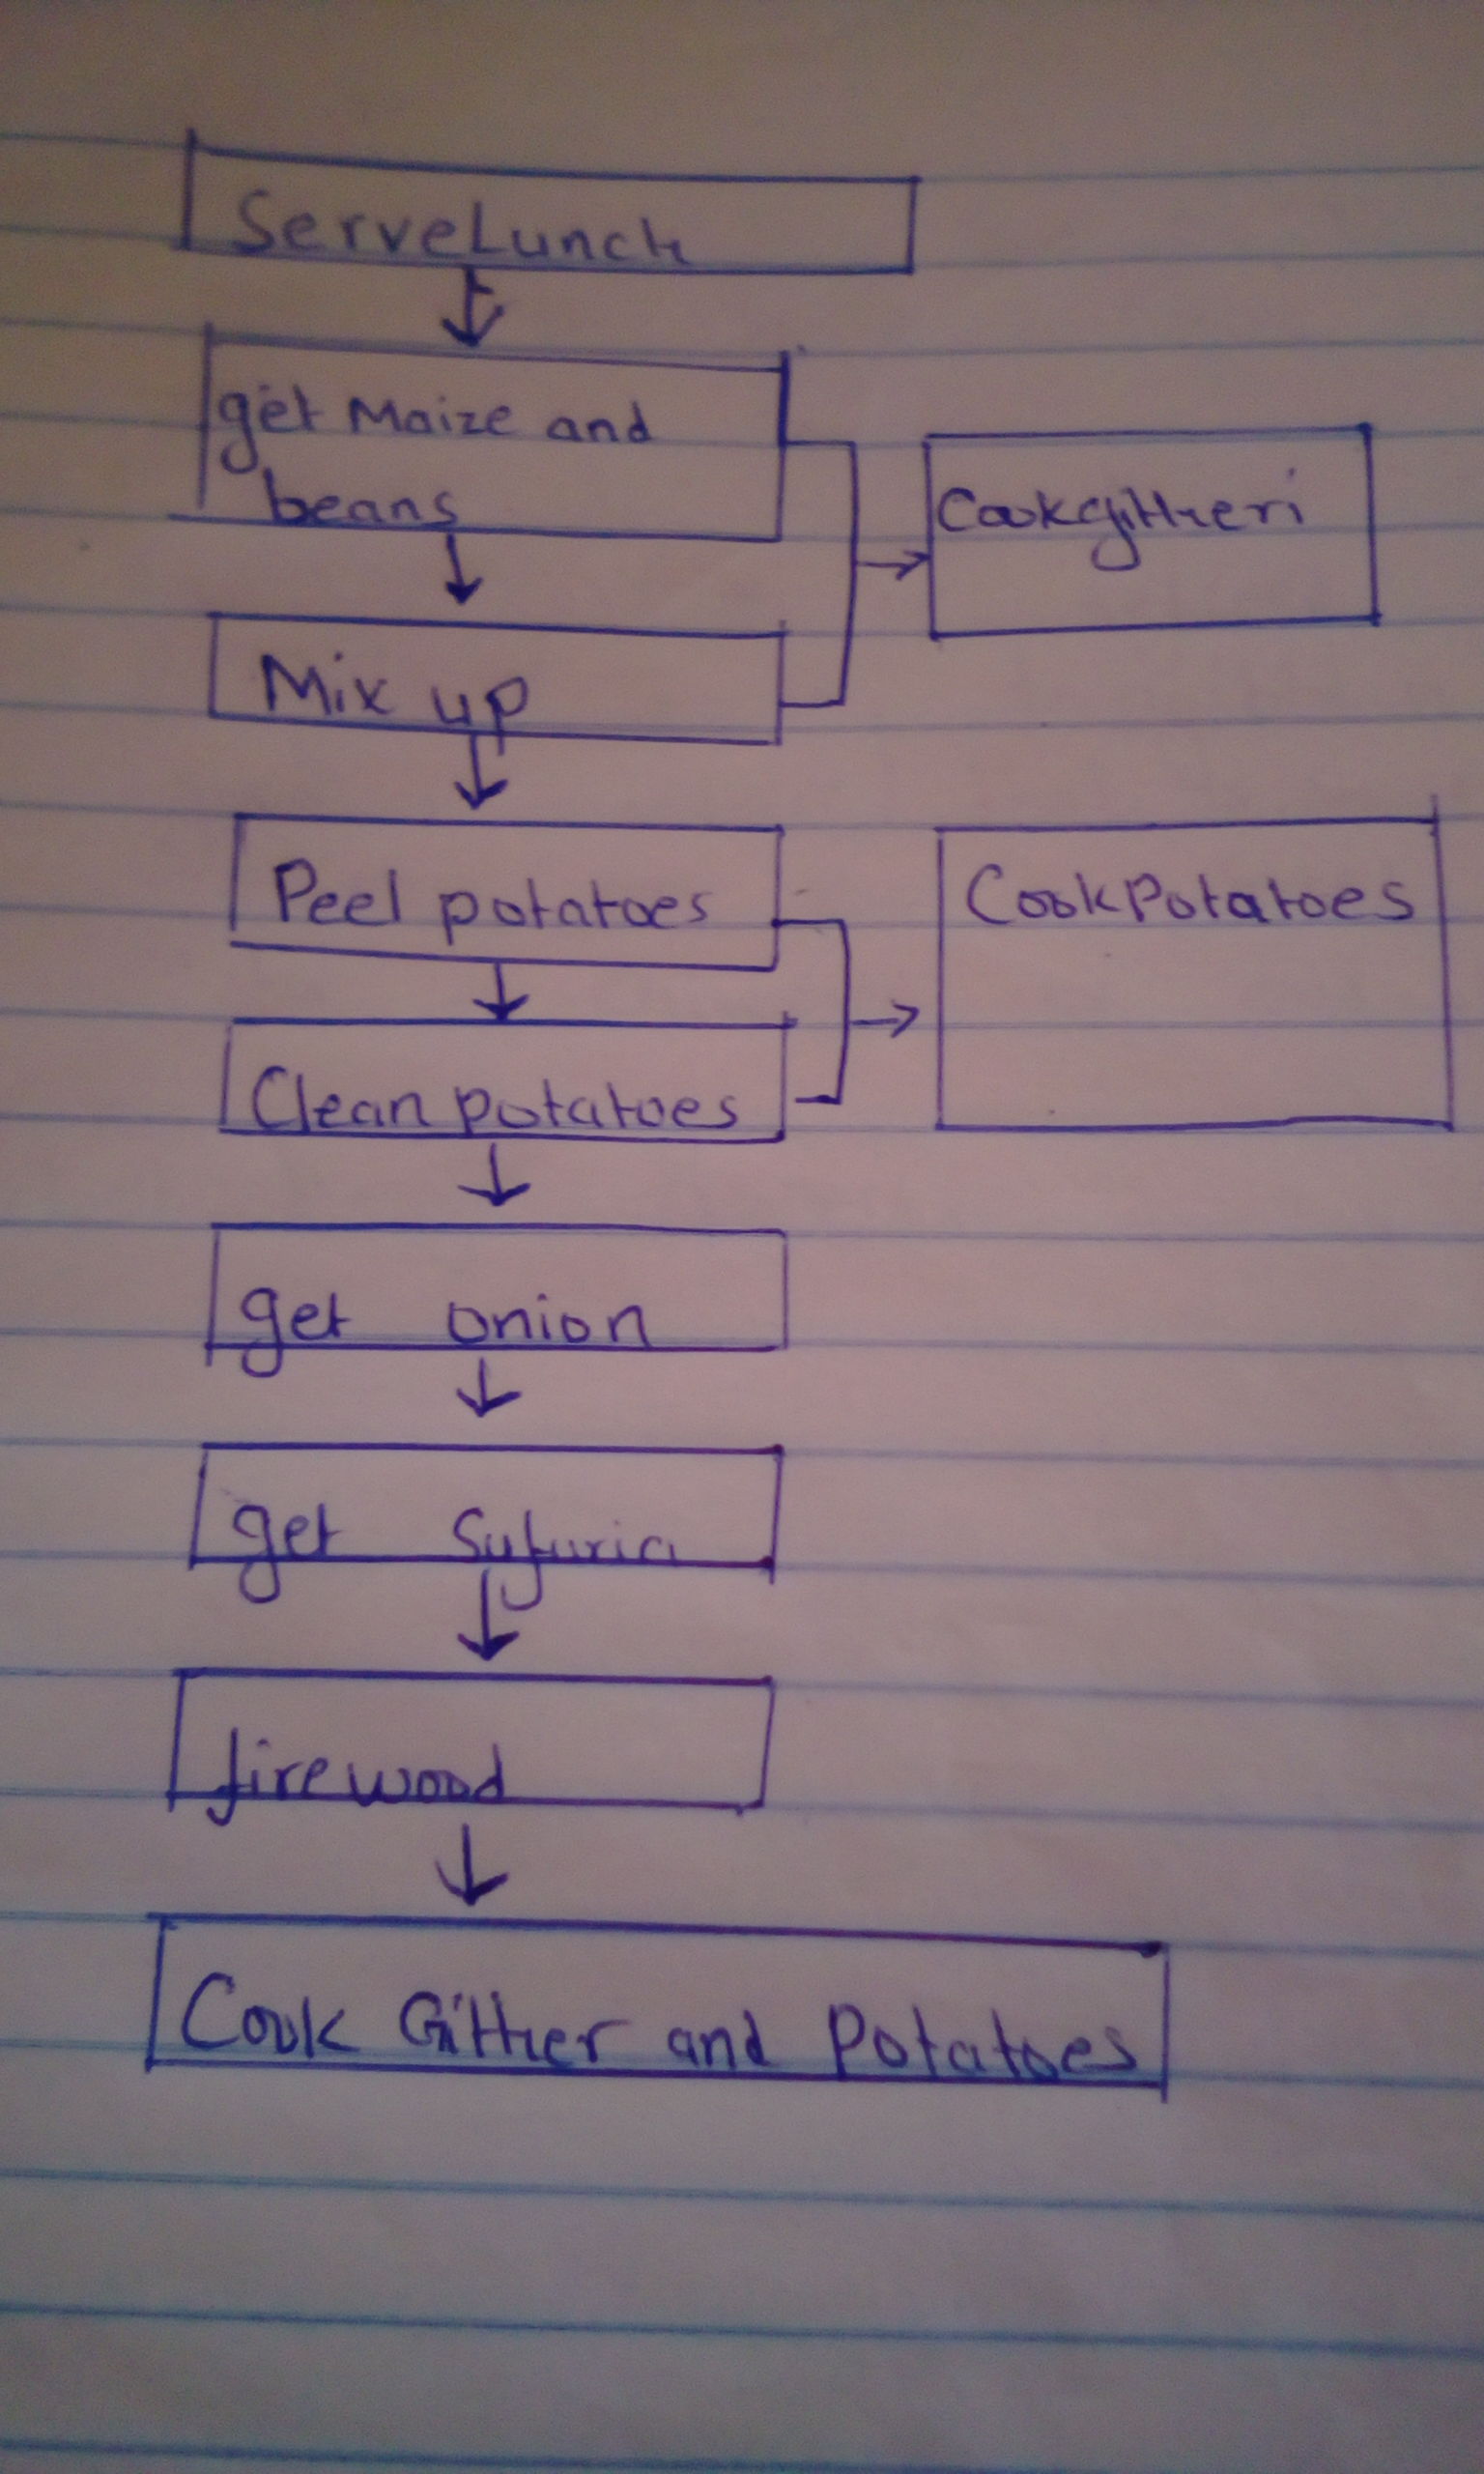 ServeLunch
get Maize and
beans
Cookgittheri
Mix up
Peel potatoes
CookPotatoes
Clean potatoes
get onion
get Sufuria
firewood
Cook Gitther and Potatoes